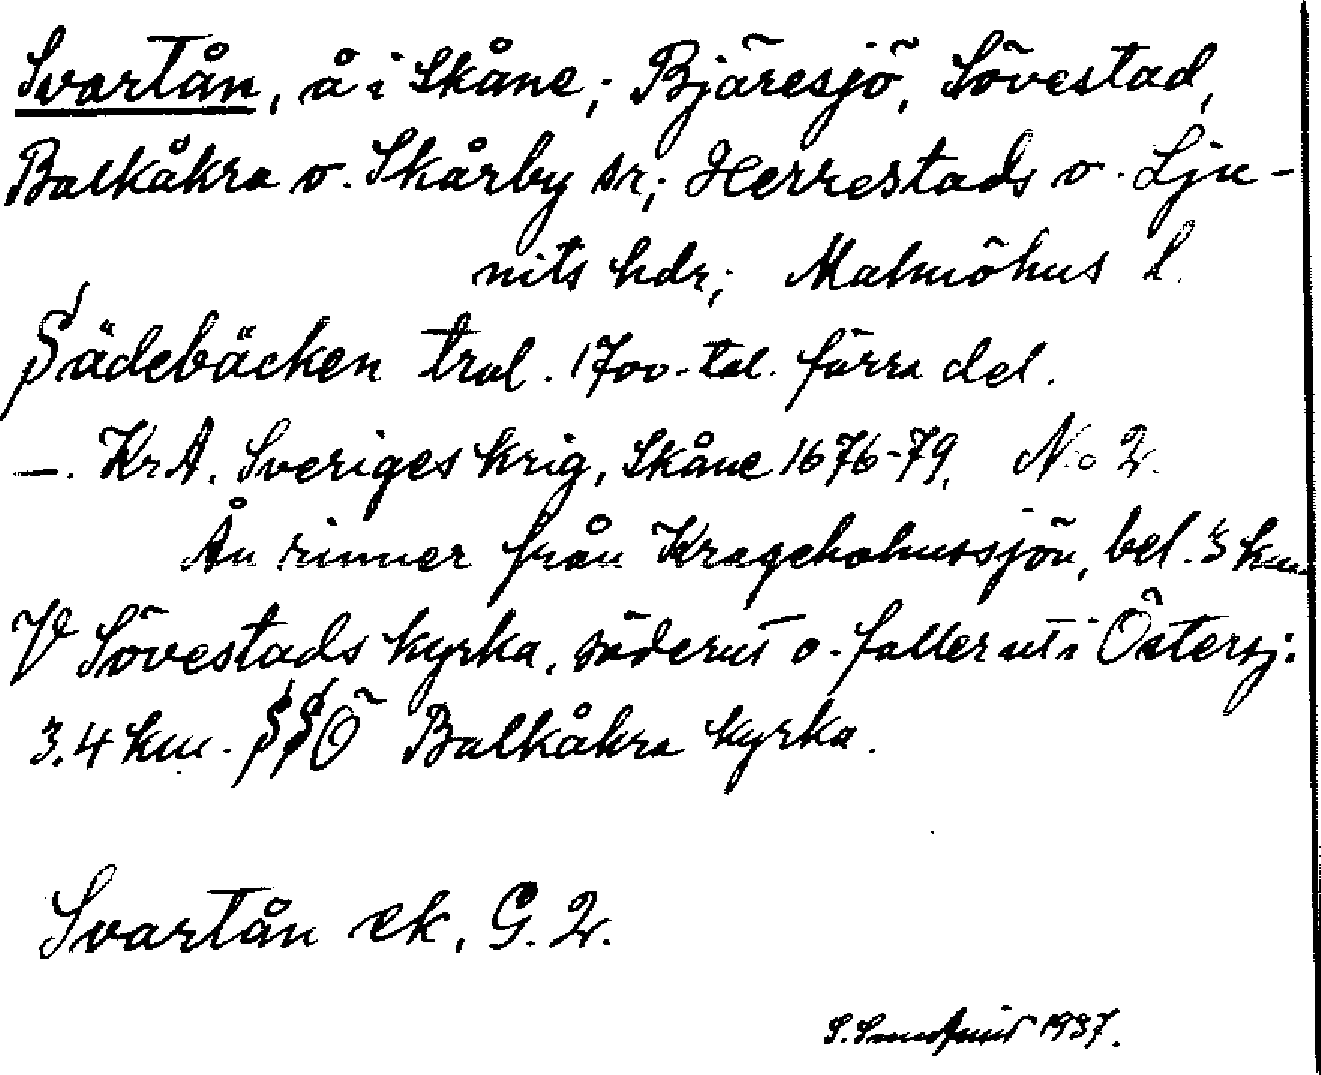 Svartån, å i Skåne; Bjäresjö, Sövestad,
Balkåkra o. Skårby sr; Herrestads o. Lju-
nits hdr; Malmöhus l.
Sädebäcken trol. 1700-tal. förra del.
—. KrA. Sveriges krig, Skåne 1676-79. No 2.
Ån rinner från Krageholmssjön, bel. 3 km
V Sövestads kyrka, söderut o. faller ut i Östersj:
3.4 km. SSÖ Balkåkra kyrka.
Svartån ek. G. 2.
S. 1937.